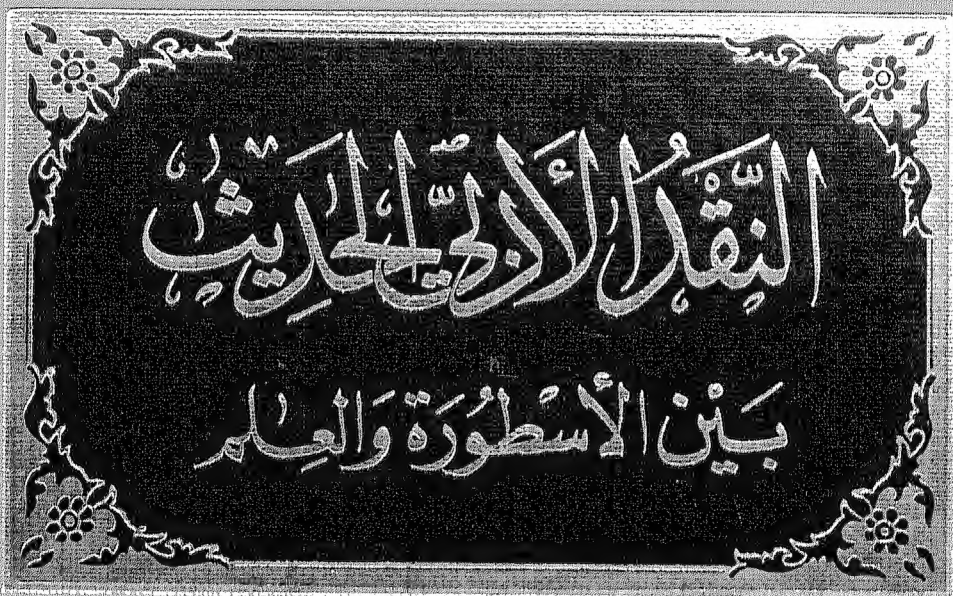 النَّقْدُ الأَدَبِيّ الحَدِيث
بَيْن الأسْطُورَة وَالعِلم